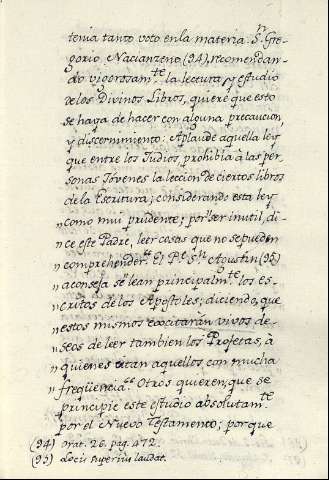 tenia tanto voto en la materia. S.n Gre-
gorio Nacianzeno (94), recomendan-
do vigorosam.te la lectura, y estudio
de los Divinos Libros, quiere que esto
se haya de hacer con alguna precaucion,
y discernimiento: Aplaude aquella ley
que entre los Judios, prohibia à las per-
sonas Jovenes la leccion de ciertos libros
de la Escritura; considerando esta ley
„ como mui prudente; por ser inutil, di-
„ ce este Padre, leer cosas que no se pueden
„ comprehender." El P.e S.n Agustin (95)
„ aconseja se lean principalm.te los es-
„ critos de los Apostoles; diciendo, que
„ estos mismos excitarán vivos de-
„ seos de leer tambien los Profetas, à
„ quienes citan aquellos con mucha
„ freqüencia." Otros quieren, que se
principie este estudio absolutam.te
por el Nuevo Testamento; porque
(94) Orat. 26. pag. 472.
(95) Locis superius laudat.